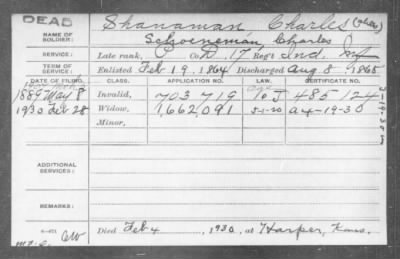 DEAD
NAME OF SOLDIER: Shanaman Charles (Alias)
Schoeneman, Charles
SERVICE: Late rank, P Co. D, 17 Reg't Ind. Inf
TERM OF SERVICE: Enlisted Feb 19, 1864 Discharged Aug 8, 1865
DATE OF FILING. CLASS. APPLICATION NO. CERTIFICATE NO.
1889 May 8 Invalid, 703 719 J 485 124
1930 Feb 28 Widow, 1,662,091 5-1-20 ax-19-30
Minor,
ADDITIONAL SERVICES:
REMARKS:
Died Feb 4, 1930, at Harper, Kans.